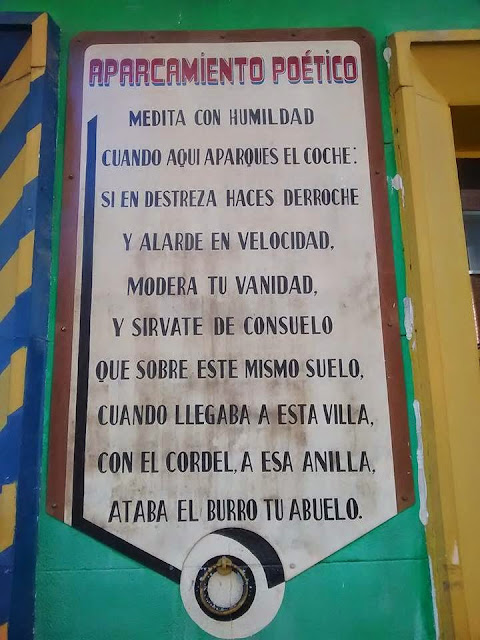 APARCAMIENTO POÉTICO
MEDITA CON HUMILDAD
CUANDO AQUI APARQUES EL COCHE:
SI EN DESTREZA HACES DERROCHE
Y ALARDE EN VELOCIDAD,
MODERA TU VANIDAD,
Y SIRVATE DE CONSUELO
QUE SOBRE ESTE MISMO SUELO,
CUANDO LLEGABA A ESTA VILLA,
CON EL CORDEL, A ESA ANILLA,
ATABA EL BURRO TU ABUELO.